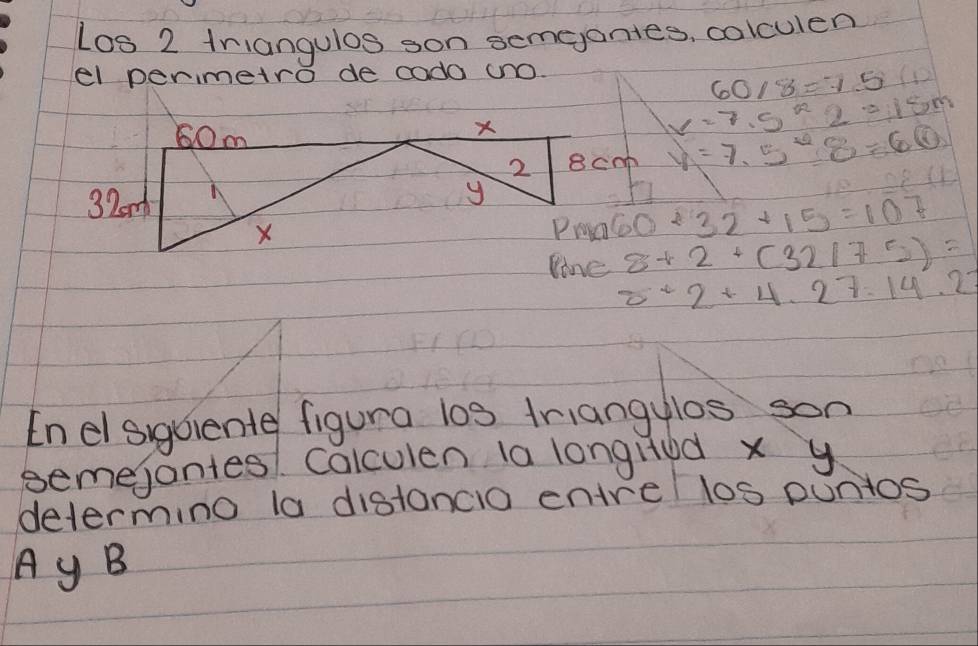 Los 2 triangulos son semejantes, calculen
el perimetro de cada uno.
60/8=7.5
60m
x
7.5 * 2 = 15m
1
2
8cm
y = 7.5 * 8 = 60
32cm
y
x
60 + 32 + 15 = 107
8 + 2 + (32/7.5) =
8 + 2 + 4.27 = 14.2
En el siguiente figura los triangulos son
semejantes. Calculen la longitud x y
determino la distancia entre los puntos
A y B